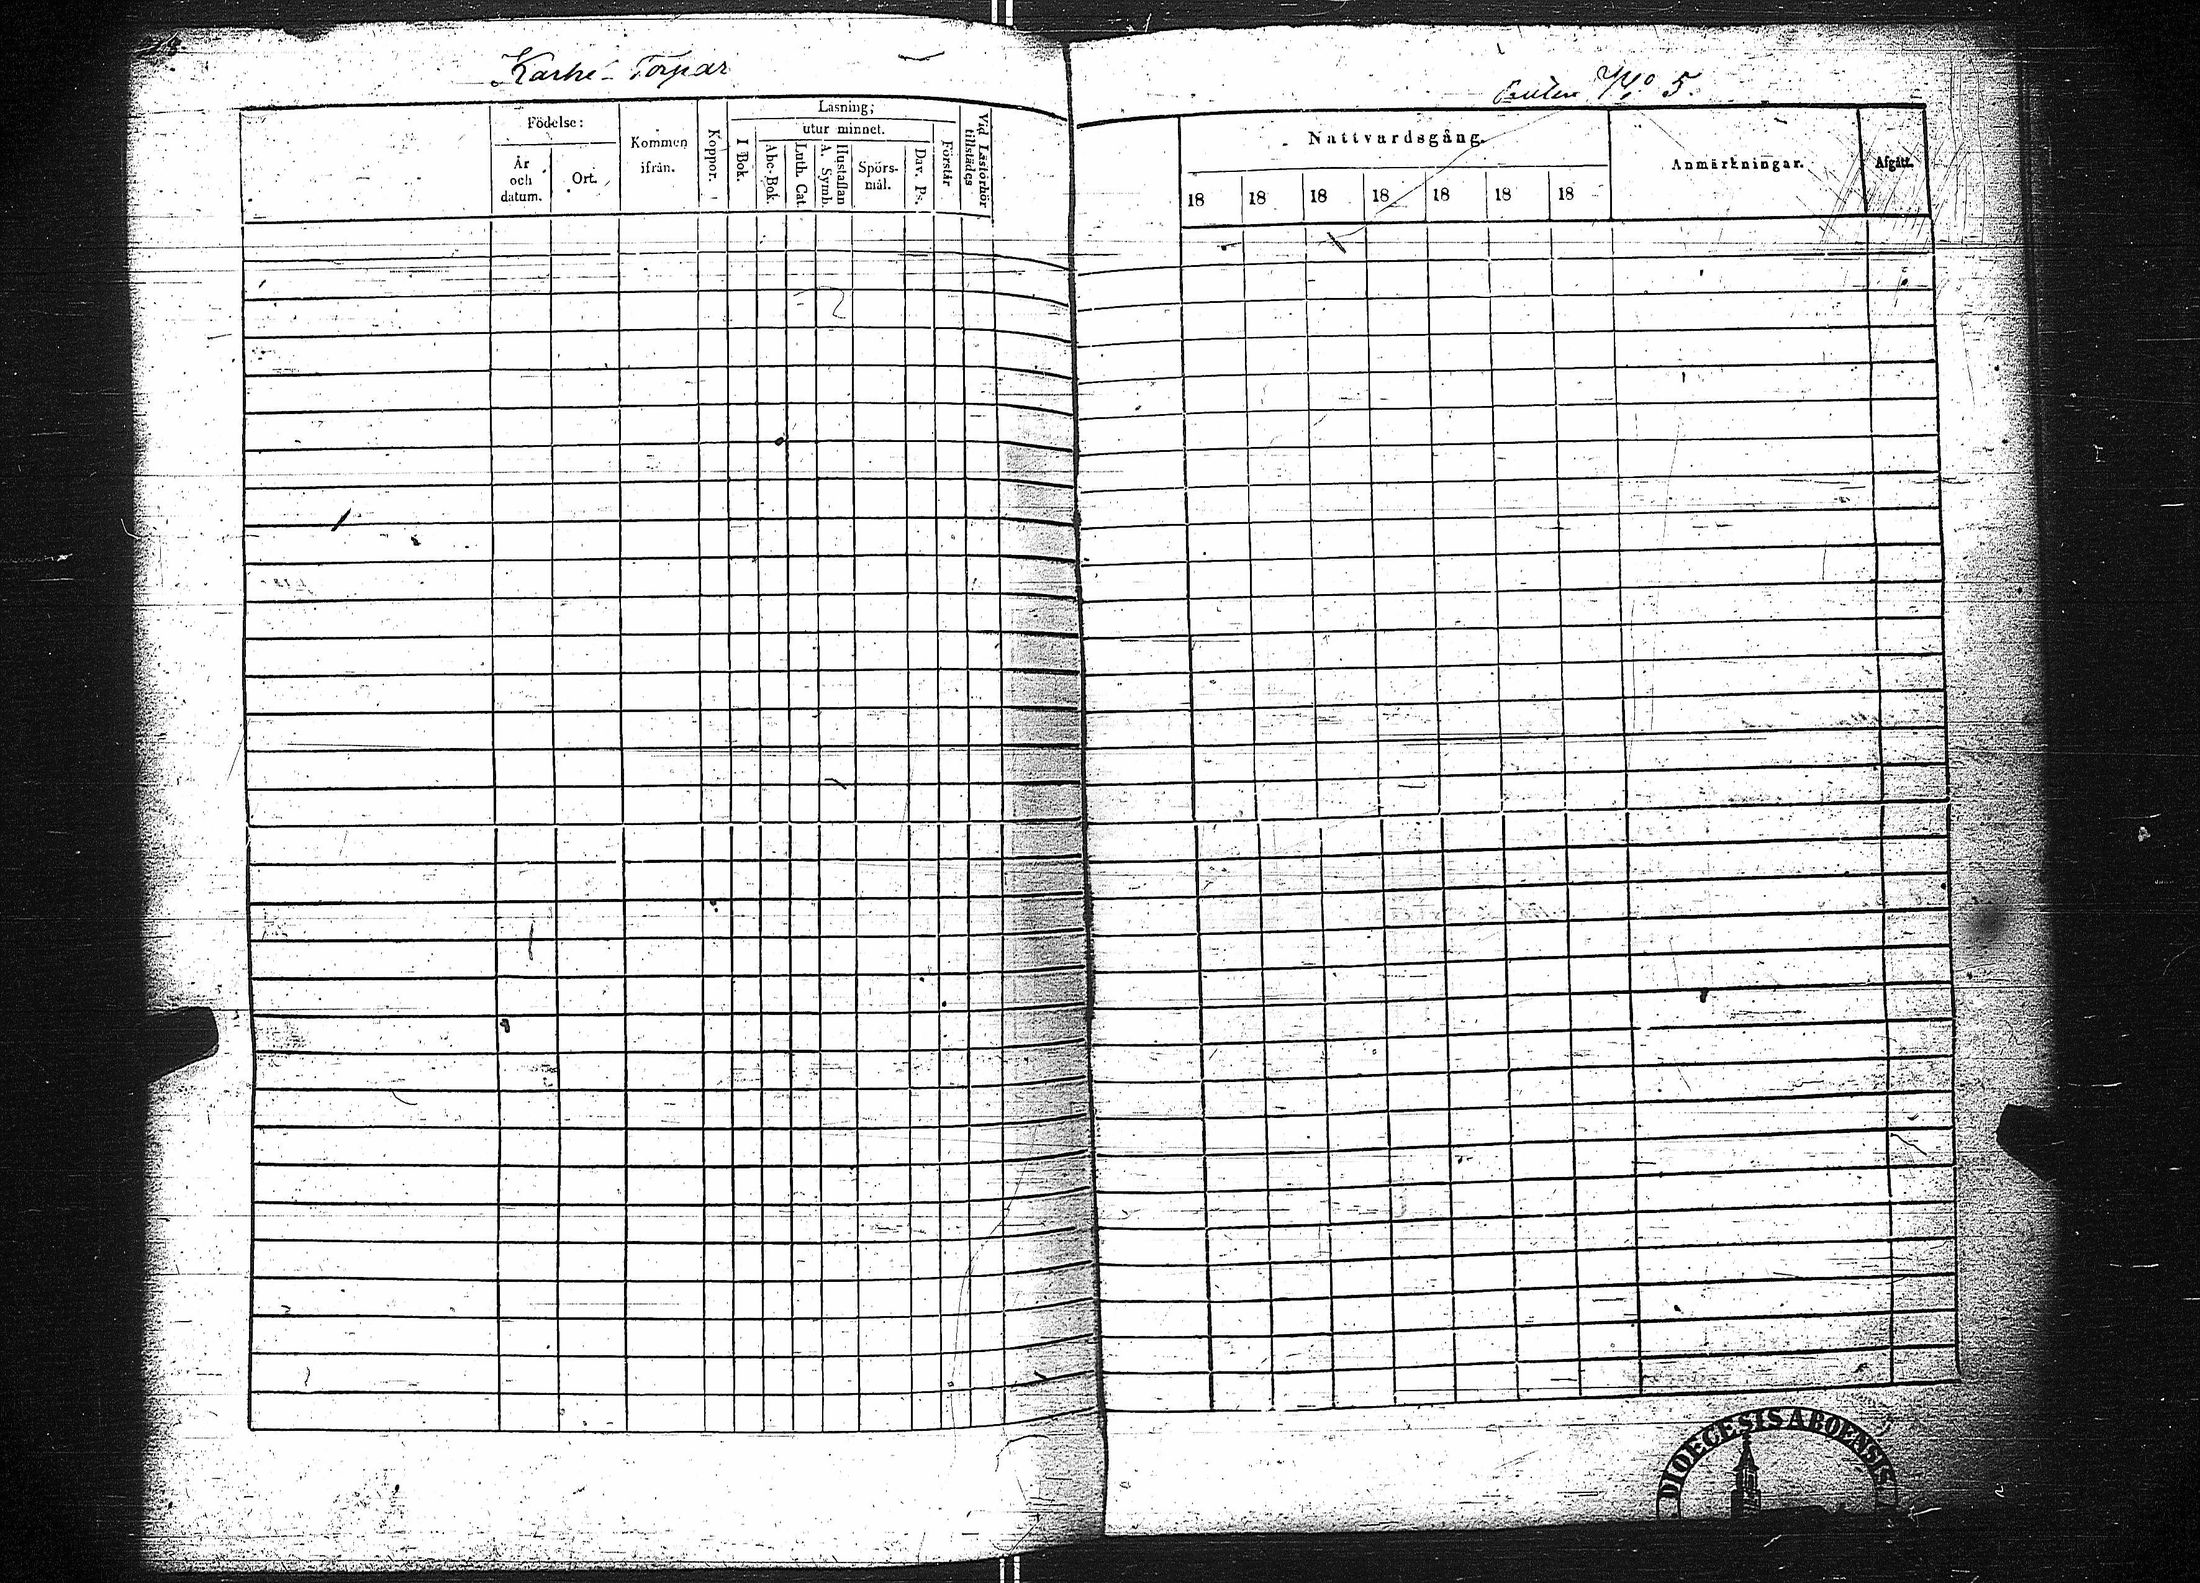 Karhi Torpar
No 5.
Födelse:
År och datum.
Ort.
Kommen ifrån.
Koppor.
Läsning;
I Bok.
utur minnet.
Abc-Bok.
Luth. Cat.
Hustaflan A. Symb.
Spörs-mål.
Dav. Ps.
Förstår
Vid Läsförhör tillstädes
Nattvardsgång.
18 18 18 18 18 18 18
Anmärkningar.
Afgått.
DIOECESIS ABOENSIS